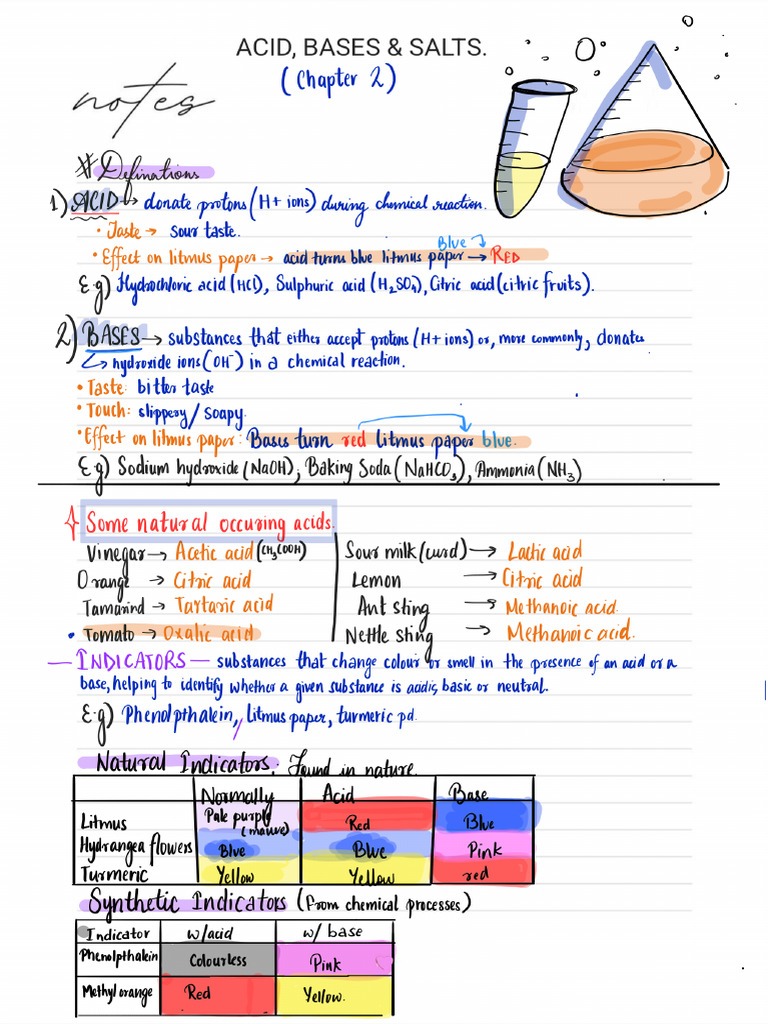 ACID, BASES & SALTS.
(Chapter 2)
notes
# Definations
1) ACID → donate protons (H+ ions) during chemical reaction.
• Taste → sour taste.
Blue
• Effect on litmus paper → acid turns blue litmus paper → RED
E.g) Hydrochloric acid (HCl), Sulphuric acid (H₂SO₄), Citric acid (citric fruits).
2) BASES → substances that either accept protons (H+ ions) or, more commonly, donates
↳ hydroxide ions (OH⁻) in a chemical reaction.
• Taste: bitter taste
• Touch: slippery / Soapy
• Effect on litmus paper: Bases turn red litmus paper blue.
E.g) Sodium hydroxide (NaOH), Baking Soda (NaHCO₃), Ammonia (NH₃)
Some natural occuring acids.
Vinegar → Acetic acid (CH₃COOH)
Orange → Citric acid
Tamarind → Tartaric acid
• Tomato → Oxalic acid
Sour milk (curd) → Lactic acid
Lemon → Citric acid
Ant sting → Methanoic acid.
Nettle sting → Methanoic acid.
— INDICATORS — substances that change colour or smell in the presence of an acid or a
base, helping to identify whether a given substance is acidic, basic or neutral.
E.g) Phenolpthalein, Litmus paper, turmeric pd.
Natural Indicators: Found in nature.
Normally Acid Base
Litmus Pale purple (mauve) Red Blue
Hydrangea flowers Blue Blue Pink
Turmeric Yellow Yellow red
Synthetic Indicators (from chemical processes)
Indicator w/acid w/ base
Phenolpthalein Colourless Pink
Methyl orange Red Yellow.